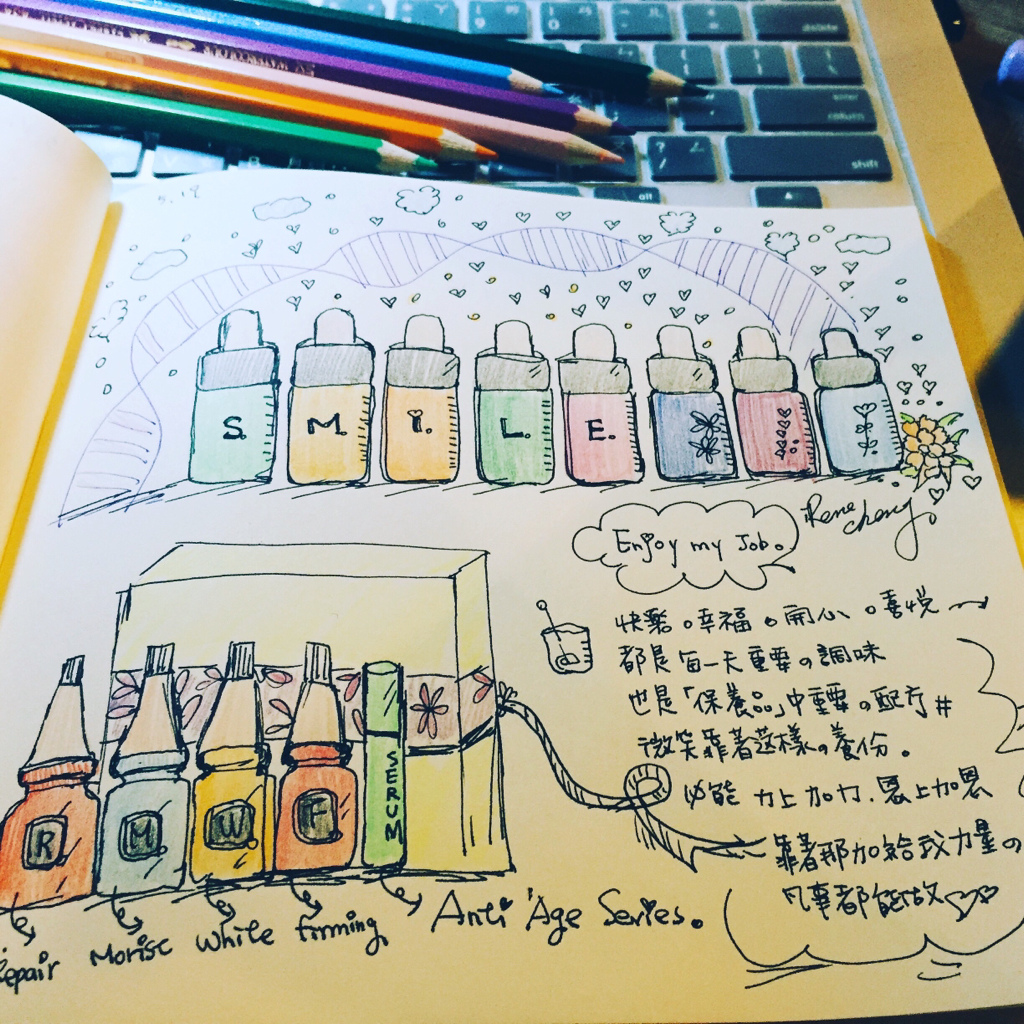 delete
enter
return
shift
alt
5.19
S. M. i. L. E.
Rene cheng.
Enjoy my Job.
快樂。幸福。開心。喜悅
都是每一天重要の調味
也是「保養品」中重要の配方#
微笑靠著這樣の養份。
必能 力上加力.恩上加恩
靠著那加給我力量の
凡事都能做
R M W F SERUM
Repair Morisc White firming, Anti 'Age Series.